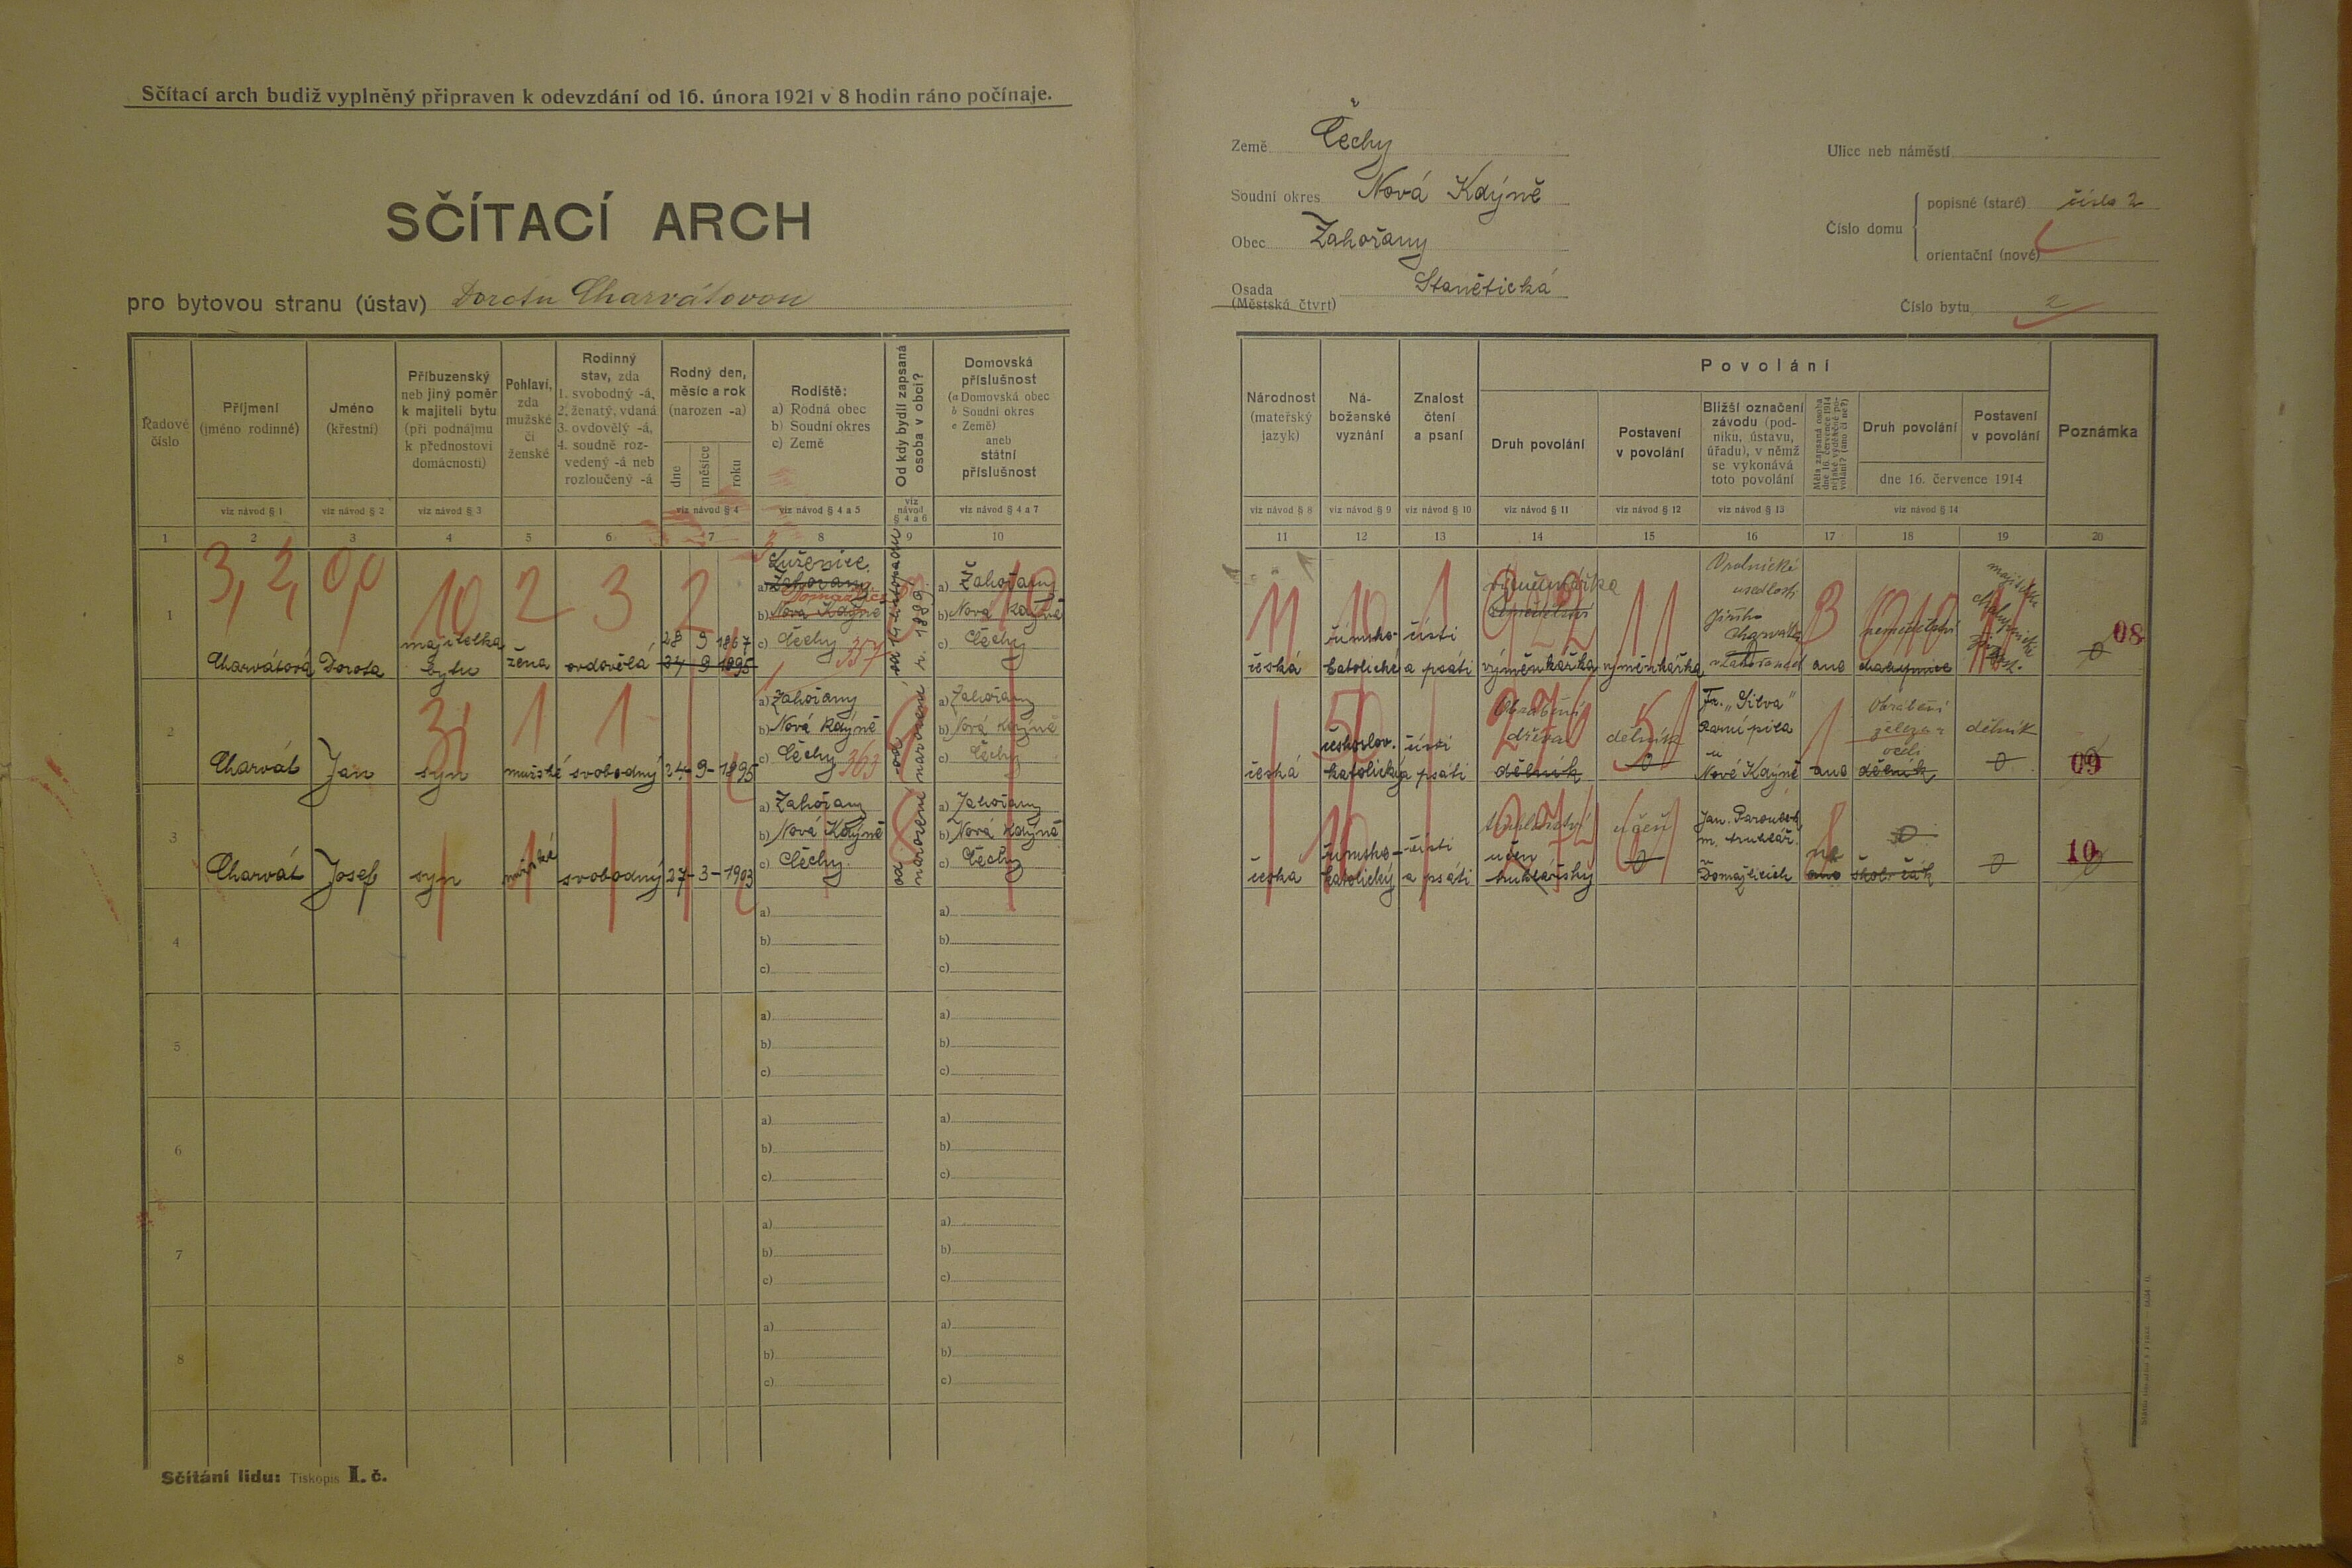 Sčítací arch budiž vyplněný připraven k odevzdání od 16. února 1921 v 8 hodin ráno počínaje.
SČÍTACÍ ARCH
pro bytovou stranu (ústav) Dorotu Charvátovou
Země Čechy
Soudní okres Nová Kdýně
Obec Zahořany
Osada Stanětická
(Městská čtvrt)
Ulice neb náměstí
Číslo domu
popisné (staré) číslo 2
orientační (nové)
Číslo bytu 2
Řadové číslo
Příjmení
(jméno rodinné)
viz návod § 1
Jméno
(křestní)
viz návod § 2
Příbuzenský
neb jiný poměr
k majiteli bytu
(při podnájmu
k přednostovi
domácnosti)
viz návod § 3
Pohlaví,
zda
mužské
či
ženské
Rodinný
stav, zda
1. svobodný -á,
2. ženatý, vdaná
3. ovdovělý -á,
4. soudně roz-
vedený -á neb
rozloučený -á
Rodný den,
měsíc a rok
(narozen -a)
dne
měsíce
roku
viz návod § 4
Rodiště:
a) Rodná obec
b) Soudní okres
c) Země
viz návod § 4 a 5
Od kdy bydlí zapsaná
osoba v obci?
viz
návod
§ 4 a 6
Domovská
příslušnost
(a Domovská obec
b Soudní okres
c Země)
aneb
státní
příslušnost
viz návod § 4 a 7
Národnost
(mateřský
jazyk)
viz návod § 8
Ná-
boženské
vyznání
viz návod § 9
Znalost
čtení
a psaní
viz návod § 10
Povolání
Druh povolání
viz návod § 11
Postavení
v povolání
viz návod § 12
Bližší označení
závodu (pod-
niku, ústavu,
úřadu), v němž
se vykonává
toto povolání
viz návod § 13
Měla zapsaná osoba
dne 16. července 1914
nějaké výdělečné po-
volání? (ano či ne?)
Druh povolání
Postavení
v povolání
dne 16. července 1914
viz návod § 14
Poznámka
1 2 3 4 5 6 7 8 9 10
11 12 13 14 15 16 17 18 19 20
3, 2, 0,0 10 2 3 2
1
Charvátová Dorota
majitelka
bytu
žena ovdovělá
28 9 1867
24 9 1895
Luženice
a) Zahořany
Domažlice
b) Nová Kdýně
c) Čechy 357
a) Zahořany
b) Nová Kdýně
c) Čechy
česká
římsko-
katolické
čísti
a psáti
výměnkářka
výměnkářka
Rolnické
usedlosti
Jiřího
Charváta
ano
zemědělství
08
2
Charvát Jan syn mužské svobodný 24 - 9 - 1895
a) Zahořany
b) Nová Kdýně
c) Čechy 363
a) Zahořany
b) Nová Kdýně
c) Čechy
česká
českoslov.
katolický
čísti
a psáti
Obrábění
dřeva
dělník
dělník
0
Fa. „Silva"
Parní pila
u
Nové Kdýně
ano
Obrábění
železa a
oceli
dělník
dělník
0
09
3
Charvát Josef syn mužské svobodný 27 - 3 - 1903
a) Zahořany
b) Nová Kdýně
c) Čechy
a) Zahořany
b) Nová Kdýně
c) Čechy
česká
římsko-
katolický
čísti
a psáti
truhlářství
učen
truhlářský
učeň
0
m. truhlář.
Domažlicích
ne
ano
0
školčák
0
10
4
a)
b)
c)
a)
b)
c)
5
a)
b)
c)
a)
b)
c)
6
a)
b)
c)
a)
b)
c)
7
a)
b)
c)
a)
b)
c)
8
a)
b)
c)
a)
b)
c)
Sčítání lidu: Tiskopis I. č.